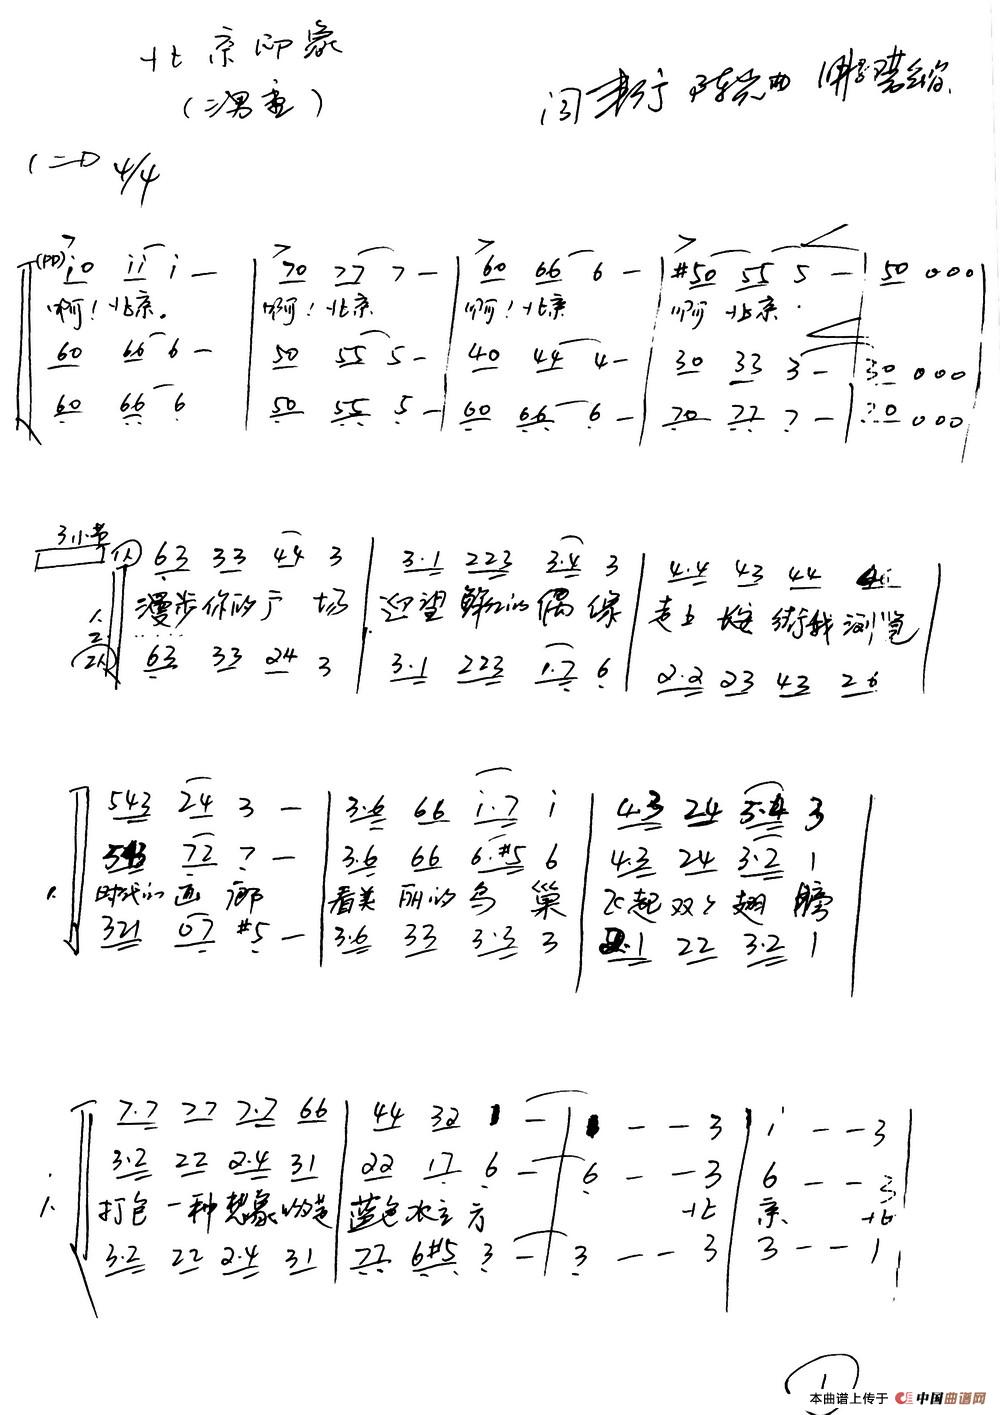 北京印象
(二男重)
1=D 4/4
(PD) i0 ii i - | 70 77 7 - | 60 66 6 - | #50 55 5 - | 50 0 0 0
啊！北京。 啊！北京 啊！北京 啊 北京
60 66 6 - | 50 55 5 - | 40 44 4 - | 30 33 3 - | 30 0 0 0
60 66 6 | 50 55 5 - | 60 66 6 - | 70 77 7 - | 70 0 0 0
3小节
63 33 44 3 | 3·1 223 3·4 3 | 4·4 43 44
漫步你的广场 迎望鲜红的偶像 走上长安街我浏览
63 33 24 3 | 3·1 223 1·7 6 | 2·2 23 43 26
543 24 3 - | 3·6 66 i·7 i | 4·3 24 5·4 3
543 72 7 - | 3·6 66 6·#5 6 | 4·3 24 3·2 1
时代的画廊 看美丽的鸟巢 飞起双翅膀
321 07 #5 - | 3·6 33 3·3 3 | 2·1 22 3·2 1
7·7 77 7·7 66 | 44 32 1 - | 1 - - 3 | i - - 3
3·2 22 2·4 31 | 22 17 6 - | 6 - - 3 | 6 - - 3
打包一种想象的 蓝色水立方 北京 北
3·2 22 2·4 31 | 77 6#5 3 - | 3 - - 3 | 3 - - 1
1
本曲谱上传于 中国曲谱网